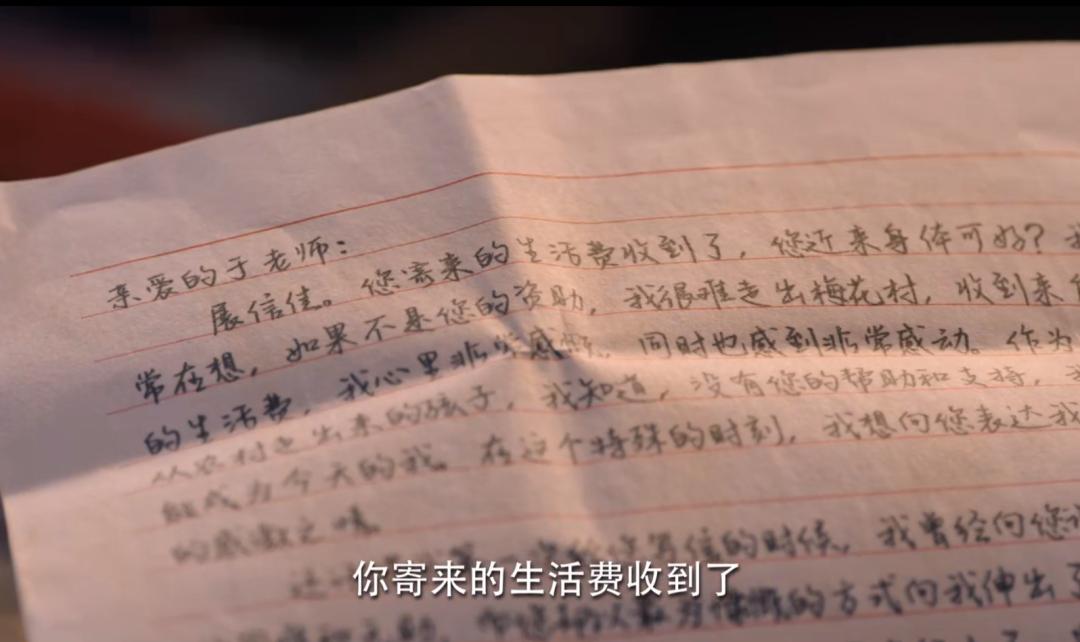 亲爱的于老师：
展信佳。您寄来的生活费收到了，您近来身体可好？我
常在想，如果不是您的资助，我很难走出梅花村，收到来自
的生活费，我心里非常感慨，同时也感到非常感动。作为
从农村走出来的孩子，我知道，没有您的帮助和支持，我
能成为今天的我。在这个特殊的时刻，我想向您表达我
的感激之情。
写信的时候，我曾经向您
的方式向我伸出了
你寄来的生活费收到了